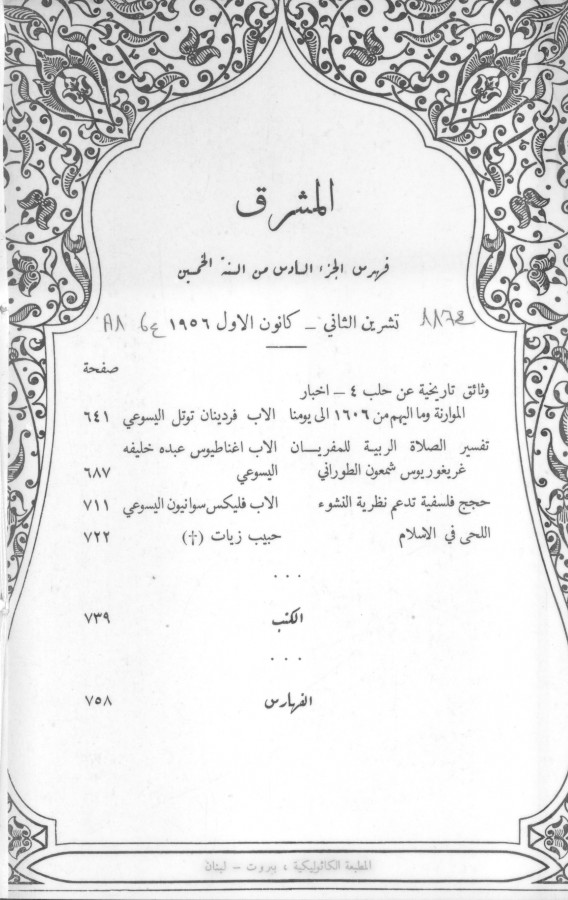 المشرق
فهرس الجزء السادس من السنة الخمسين
تشرين الثاني – كانون الاول ١٩٥٦
صفحة
وثائق تاريخية عن حلب ٤ – اخبار
الموارنة وما اليهم من ١٦٠٦ الى يومنا الاب فردينان توتل اليسوعي ٦٤١
تفسير الصلاة الربية للمفريان الاب اغناطيوس عبده خليفه
غريغوريوس شمعون الطوراني اليسوعي ٦٨٧
حجج فلسفية تدعم نظرية النشوء الاب فليكس سوانيون اليسوعي ٧١١
اللحى في الاسلام حبيب زيات (†) ٧٢٢
...
الكتب ٧٣٩
...
الفهارس ٧٥٨
المطبعة الكاثوليكية ، بيروت – لبنان